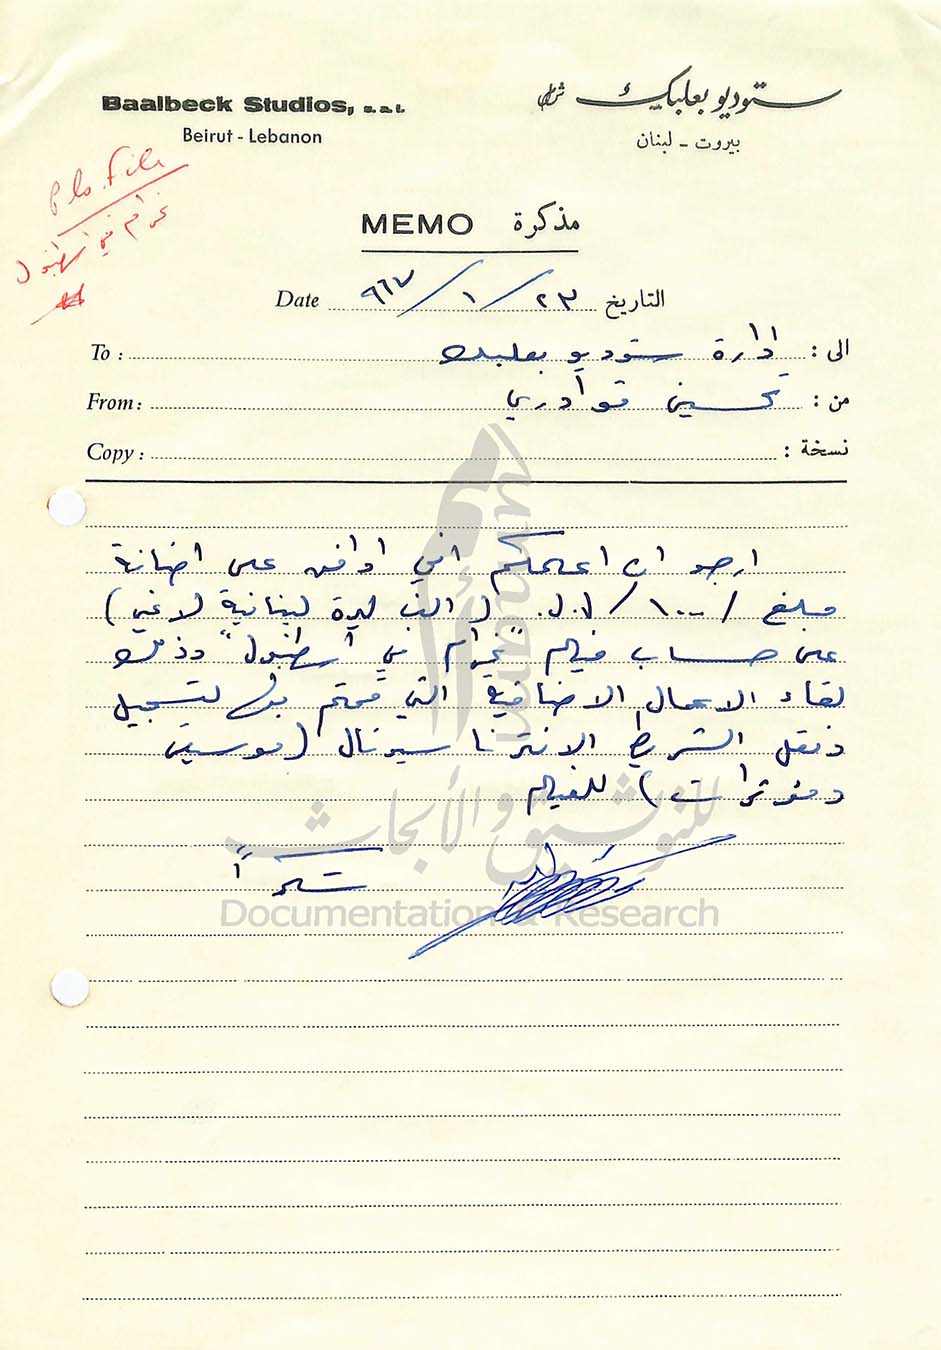 Baalbeck Studios, s.a.l.
Beirut - Lebanon
ستوديو بعلبك ش.م.ل
بيروت - لبنان
Pls. File
غرام في اسطنبول
MEMO مذكرة
Date ٩٦٧/١/٢٣ التاريخ
To : إدارة ستوديو بعلبك الى :
From: تحسين قوادري من :
Copy : نسخة :
ارجو ان اعلمكم اني اوافق على اضافة
مبلغ /١٠٠٠/ ل.ل. (الف ليرة لبنانية لاغير)
على حساب فيلم "غرام في اسطنبول" وذلك
لقاء الاعمال الاضافية التي قمتم بها لتسجيل
ونقل الشريط الانترناسيونال (موسيقى
ومؤثرات) للفيلم
شكراً
أمم
umam
للتوثيق والأبحاث
Documentation & Research